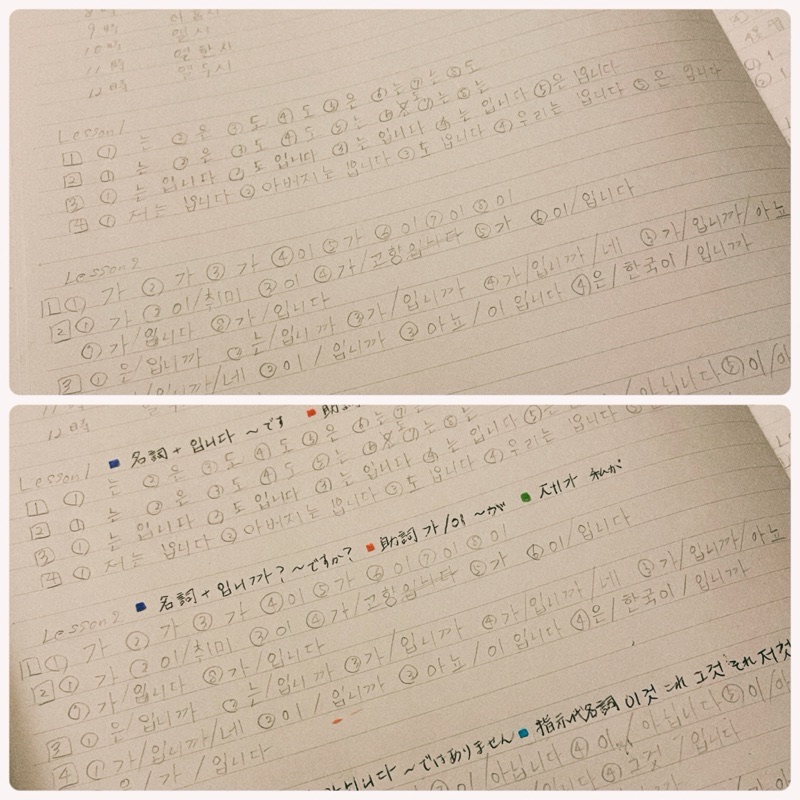 9時 아홉시
10時 열시
11時 열한시
12時 열두시
Lesson1
1 ① 는 ② 은 ③ 도 ④ 도 ⑤ 은 ⑥ 는 ⑦ 는 ⑧ 도
2 ① 는 ② 은 ③ 도 ④ 도 ⑤ 는 ⑦ 는 ⑧ 는
3 ① 는 입니다 ② 도 입니다 ③ 는 입니다 ④ 는 입니다 ⑤ 은 입니다
4 ① 저는 입니다 ② 아버지는 입니다 ③ 도 입니다 ④ 우리는 입니다 ⑤ 은 입니다
Lesson2
1 ① 가 ② 가 ③ 가 ④ 이 ⑤ 가 ⑥ 이 ⑦ 이 ⑧ 이
2 ① 가 ② 이/취미 ③ 이 ④ 가/고향입니다 ⑤ 가 ⑥ 이/입니다
⑦ 가/입니다 ⑧ 가/입니다
3 ① 은/입니까 ② 는/입니까 ③ 가/입니까 ④ 가/입니까/네 ⑤ 가/입니까/아뇨
가/입니까/네 ② 이/입니까 ③ 아뇨/이 입니다 ④ 은/한국이/입니까
12時
■ 名詞+입니다 ~です ■ 助詞
Lesson1
1 ① 는 ② 은 ③ 도 ④ 도 ⑤ 은 ⑥ 는 ⑦
2 ① 는 ② 은 ③ 도 ④ 도 ⑤ 는 ⑦ 는 ⑧ 는
3 ① 는 입니다 ② 도 입니다 ③ 는 입니다 ④ 는 입니다 ⑤
4 ① 저는 입니다 ② 아버지는 입니다 ③ 도 입니다 ④ 우리는 입니다
■ 名詞+입니까? ~ですか? ■ 助詞 가/이 ~が ■ 제가 私が
Lesson2
1 ① 가 ② 가 ③ 가 ④ 이 ⑤ 가 ⑥ 이 ⑦ 이 ⑧ 이
2 ① 가 ② 이/취미 ③ 이 ④ 가/고향입니다 ⑤ 가 ⑥ 이/입니다
⑦ 가/입니다 ⑧ 가/입니다
3 ① 은/입니까 ② 는/입니까 ③ 가/입니까 ④ 가/입니까/네 ⑤ 가/입니까/아뇨
4 ① 가/입니까/네 ② 이/입니까 ③ 아뇨/이 입니다 ④ 은/한국이/입니까
가/입니다
~ではありません ■ 指示代名詞 이것 これ 그것 それ 저것
아닙니다 ④ 이 아닙니다 ⑤ 이/아
이 아닙니다 ④ 그것 /입니다